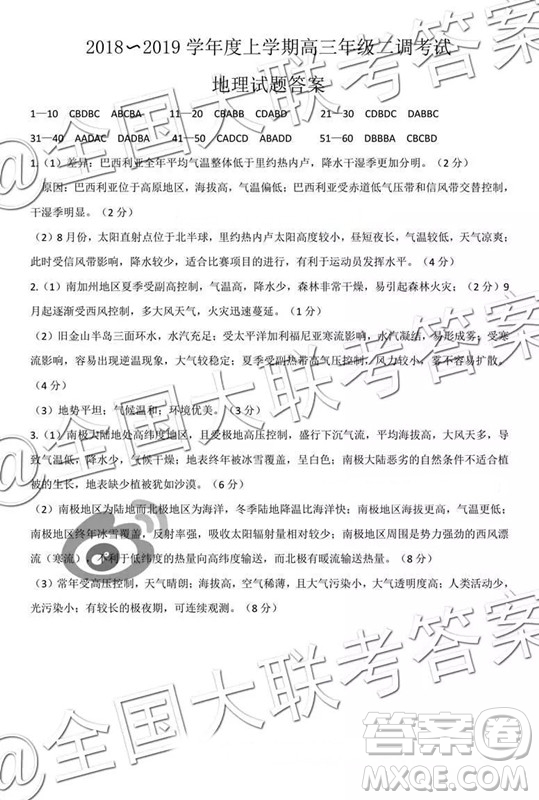 2018～2019 学年度上学期高三年级二调考试
地理试题答案
1—10 CBDBC ABCBA 11—20 CBABB CDABD 21—30 CDBDC DABBC
31—40 AADAC DADBA 41—50 CADCD ABADD 51—60 DBBBA CBCBD
1.（1）差异：巴西利亚全年平均气温整体低于里约热内卢，降水干湿季更加分明。（2 分）
原因：巴西利亚位于高原地区，海拔高，气温偏低；巴西利亚受赤道低气压带和信风带交替控制，
干湿季明显。（2 分）
（2）8 月份，太阳直射点位于北半球，里约热内卢太阳高度较小，昼短夜长，气温较低，天气凉爽；
此时受信风带影响，降水较少，适合比赛项目的进行，有利于运动员发挥水平。（4 分）
2.（1）南加州地区夏季受副高控制，气温高，降水少，森林非常干燥，易引起森林火灾；（2 分）9
月起逐渐受西风控制，多大风天气，火灾迅速蔓延。（2 分）
（2）旧金山半岛三面环水，水汽充足；受太平洋加利福尼亚寒流影响，水汽易凝结，易形成雾；受寒
流影响，容易出现逆温现象，大气稳定；夏季受副热带高气压控制，风力较小，雾不容易扩散。
（4 分）
（3）地势平坦；气候温和；环境优美。（6 分）
3.（1）南极大陆地处高纬度地区，且受极地高压控制，盛行下沉气流，平均海拔高，大风天多，导
致气温低，降水少，气候干燥；地表终年被冰雪覆盖，呈白色；南极大陆恶劣的自然条件不适合植
被的生长，地表缺少植被犹如沙漠。（6 分）
（2）南极地区为陆地而北极地区为海洋，冬季陆地降温比海洋快；南极地区海拔更高，气温更低；
南极地区终年冰雪覆盖，反射率强，吸收太阳辐射量更少；南极地区周围是势力强劲的西风漂
流（寒流），不利于低纬度的热量向高纬度输送，而北极有暖流输送热量。（8 分）
（3）常年受高压控制，天气晴朗；海拔高，空气稀薄，且大气污染小，大气透明度高；人类活动少，
光污染小；有较长的极夜期，可连续观测。（8 分）
@全国大联考答案
@全国大联考答案
@全国大联考答案
答案圈
MXQE.COM